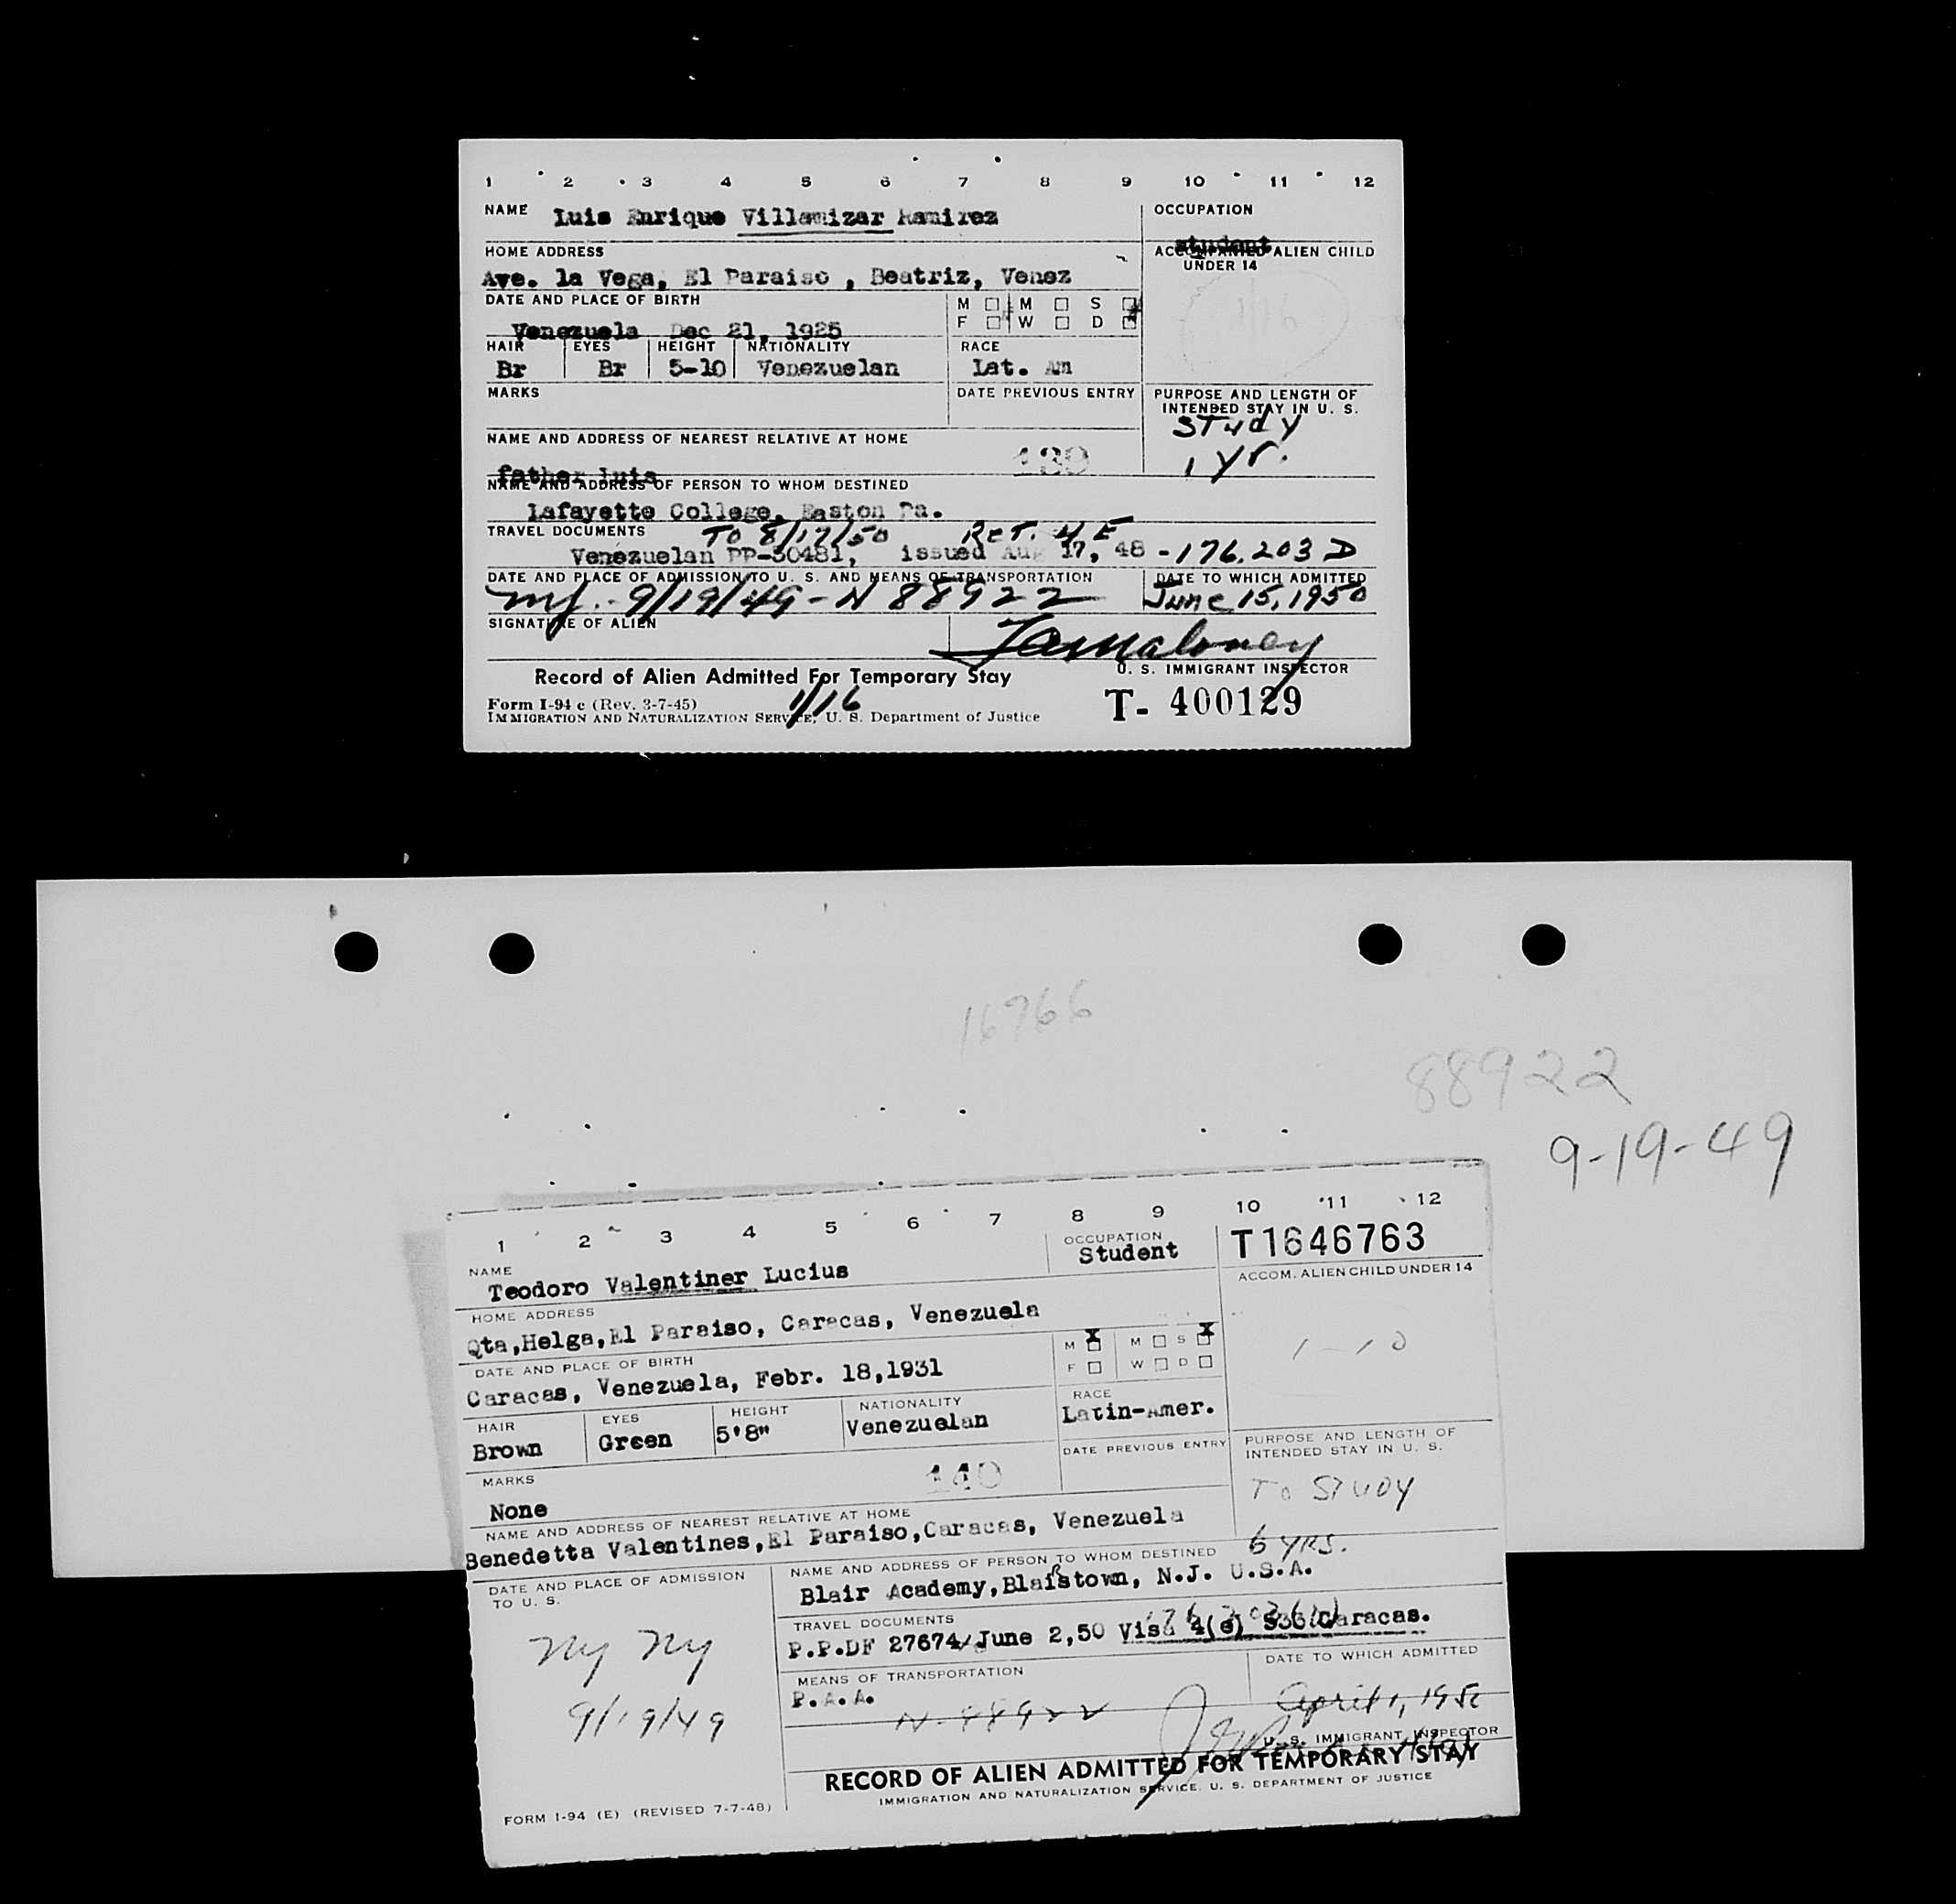 1 2 3 4 5 6 7 8 9 10 11 12
NAME Luis Enrique Villamizar Ramirez
OCCUPATION student
HOME ADDRESS
Ave. la Vega, El Paraiso , Beatriz, Venez
ACCOMPANIED ALIEN CHILD UNDER 14
1/16
DATE AND PLACE OF BIRTH
Venezuela Dec 21, 1925
M M S
F W D
HAIR EYES HEIGHT NATIONALITY RACE
Br Br 5-10 Venezuelan Lat. Am
MARKS DATE PREVIOUS ENTRY PURPOSE AND LENGTH OF INTENDED STAY IN U. S.
Study
1 yr.
NAME AND ADDRESS OF NEAREST RELATIVE AT HOME
139
father luis
NAME AND ADDRESS OF PERSON TO WHOM DESTINED
Lafayette College, Easton Pa.
TRAVEL DOCUMENTS To 8/17/50 Ret. 4E
Venezuelan PP-30481, issued Aug 17, 48 - 176.203 D
DATE AND PLACE OF ADMISSION TO U. S. AND MEANS OF TRANSPORTATION DATE TO WHICH ADMITTED
9/19/49 - N 88922 June 15, 1950
SIGNATURE OF ALIEN
U. S. IMMIGRANT INSPECTOR
Record of Alien Admitted For Temporary Stay
1/16
Form I-94 c (Rev. 3-7-45)
IMMIGRATION AND NATURALIZATION SERVICE, U. S. Department of Justice
T- 400129
16766
88922
9-19-49
1 2 3 4 5 6 7 8 9 10 11 12
NAME
Teodoro Valentiner Lucius
OCCUPATION
Student
T1646763
ACCOM. ALIEN CHILD UNDER 14
HOME ADDRESS
Qta,Helga,El Paraiso, Caracas, Venezuela
DATE AND PLACE OF BIRTH
Caracas, Venezuela, Febr. 18,1931
M X M S X
F W D
1-10
HAIR EYES HEIGHT NATIONALITY RACE
Brown Green 5'8" Venezuelan Latin-Amer.
MARKS
None
140
DATE PREVIOUS ENTRY
PURPOSE AND LENGTH OF INTENDED STAY IN U. S.
To Study
6 yrs.
NAME AND ADDRESS OF NEAREST RELATIVE AT HOME
Benedetta Valentines,El Paraiso,Caracas, Venezuela
DATE AND PLACE OF ADMISSION TO U. S.
NY NY
9/19/49
NAME AND ADDRESS OF PERSON TO WHOM DESTINED
Blair Academy,Blairstown, N.J. U.S.A.
TRAVEL DOCUMENTS
P.P.DF 27674/June 2,50 Visa 4(e) Caracas.
MEANS OF TRANSPORTATION
P.A.A.
N-88922
DATE TO WHICH ADMITTED
April 1, 195
U. S. IMMIGRANT INSPECTOR
RECORD OF ALIEN ADMITTED FOR TEMPORARY STAY
IMMIGRATION AND NATURALIZATION SERVICE, U. S. DEPARTMENT OF JUSTICE
FORM I-94 (E) (REVISED 7-7-48)